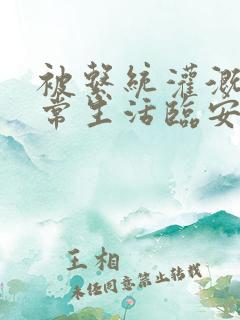 被繫統灌溉
常生活臨安
王相
未经同意禁止转载